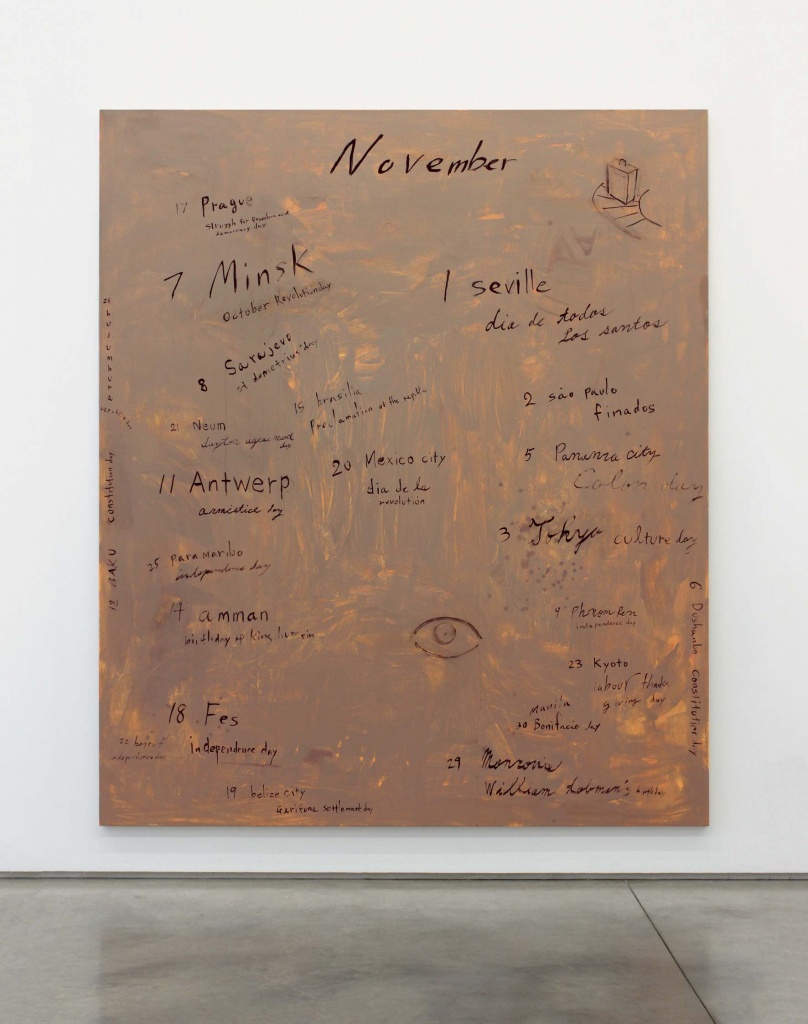 November
17 Prague
struggle for freedom and
democracy day
7 Minsk
October Revolution day
8 Sarajevo
st demetrius' day
15 brasilia
Proclamation of the
21 Neum
day
11 Antwerp
armistice day
20 Mexico city
dia de la
revolución
25 Paramaribo
independence day
14 amman
birthday of king
18 Fes
independence day
22 beirut
independence day
19 belize city
Garifuna settlement day
12 BAKU constitution day
1 seville
dia de todos
los santos
2 são Paulo
finados
5 Panama city
Colon day
3 Tokyo culture day
9 Phnom Pen
independence day
23 Kyoto
labour thanks
giving day
manila
30 Bonifacio day
29 Monrovia
William
6 Dushanbe constitution day